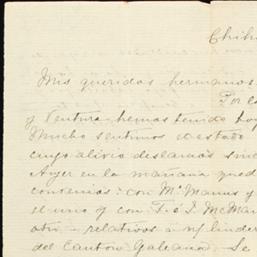 Chihu
Mis queridos hermanos
Por la
y Ventura hemos tenido hoy
Mucho sentimos el estado
cuyo alivio deseamos sinc
Ayer en la mañana qued
convenios: con Mc Manus y
el uno y con T. é I. McMan
otro - relativos a linderos
del Canton Galeana. Se